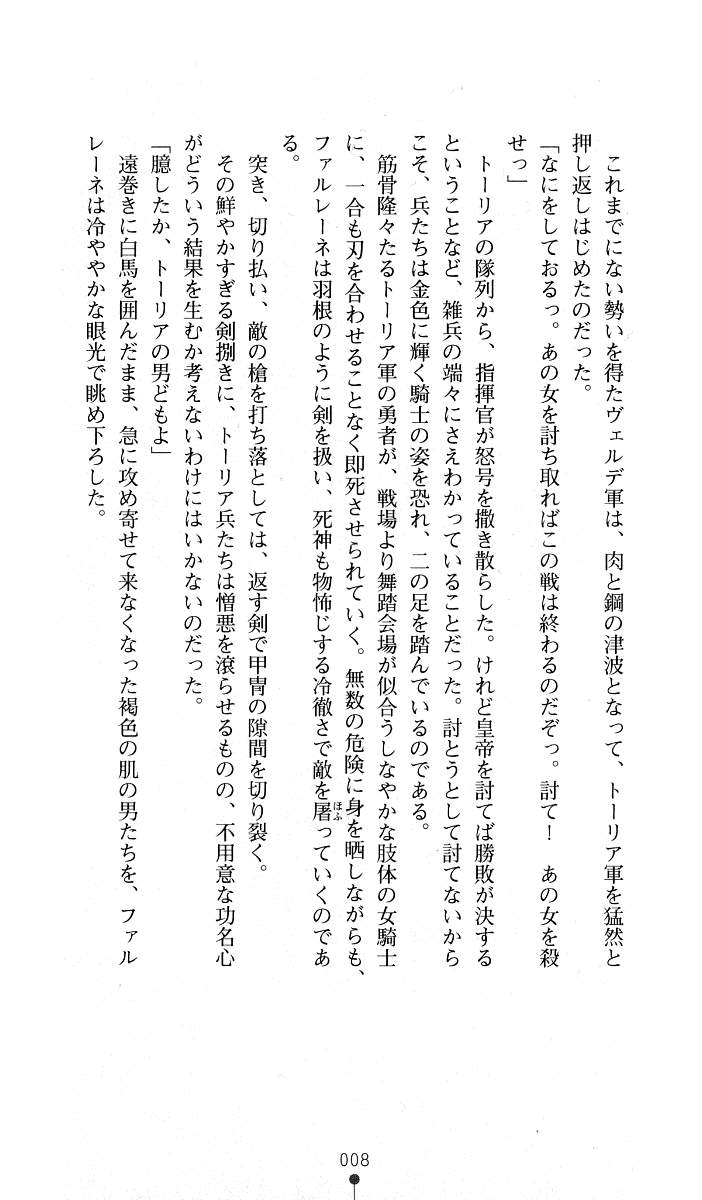 これまでにない勢いを得たヴェルデ軍は、肉と鋼の津波となって、トーリア軍を猛然と
押し返しはじめたのだった。
「なにをしておるっ。あの女を討ち取ればこの戦は終わるのだぞっ。討て！　あの女を殺
せっ」
　トーリアの隊列から、指揮官が怒号を撒き散らした。けれど皇帝を討てば勝敗が決する
ということなど、雑兵の端々にさえわかっていることだった。討とうとして討てないから
こそ、兵たちは金色に輝く騎士の姿を恐れ、二の足を踏んでいるのである。
　筋骨隆々たるトーリア軍の勇者が、戦場より舞踏会場が似合うしなやかな肢体の女騎士
に、一合も刃を合わせることなく即死させられていく。無数の危険に身を晒しながらも、
ファルレーネは羽根のように剣を扱い、死神も物怖じする冷徹さで敵を屠っていくのであ
ほふ
る。
　突き、切り払い、敵の槍を打ち落としては、返す剣で甲冑の隙間を切り裂く。
　その鮮やかすぎる剣捌きに、トーリア兵たちは憎悪を滾らせるものの、不用意な功名心
がどういう結果を生むか考えないわけにはいかないのだった。
「臆したか、トーリアの男どもよ」
　遠巻きに白馬を囲んだまま、急に攻め寄せて来なくなった褐色の肌の男たちを、ファル
レーネは冷ややかな眼光で眺め下ろした。
008